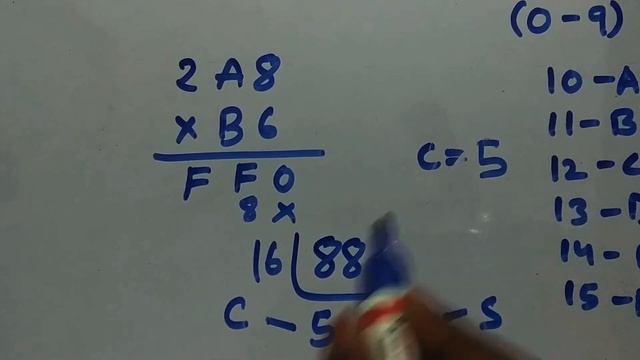 (0-9)
2 A 8
× B 6
F F 0
8 ×
C = 5
16 88
C - 5 - S
10 - A
11 - B
12 - C
13 -
14 -
15 -